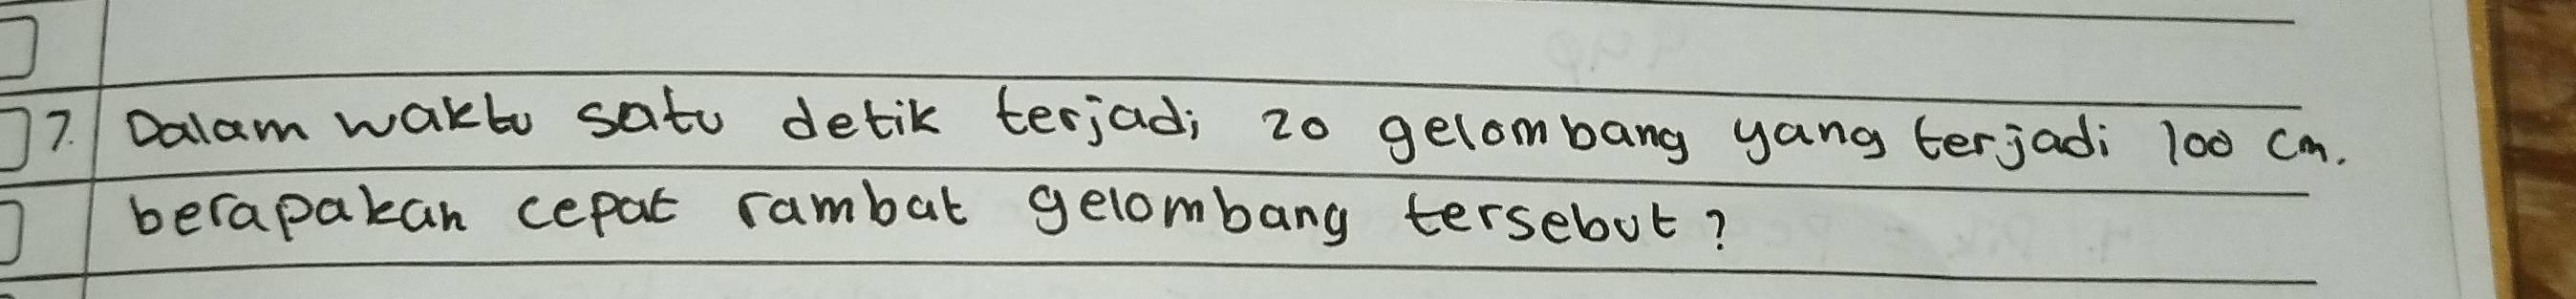 7. Dalam waktu satu detik terjadi 20 gelombang yang terjadi 100 cm.
berapakah cepat rambat gelombang tersebut?